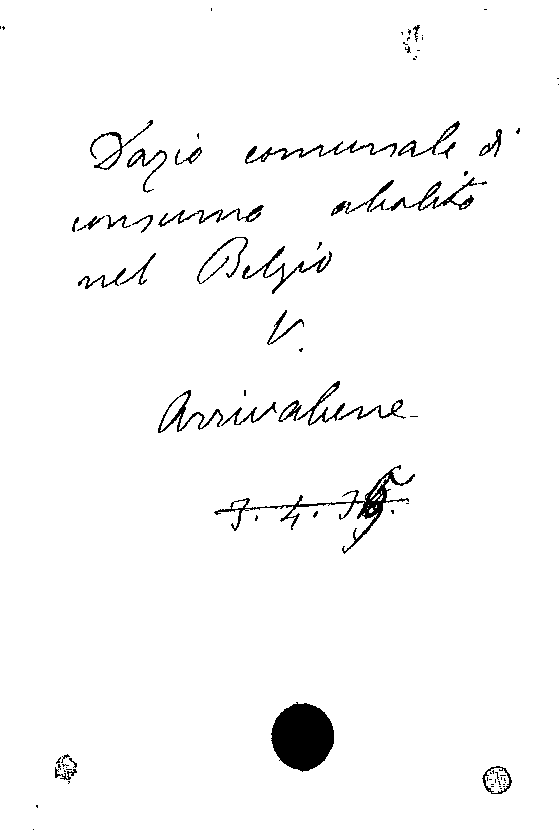 Dazio comunale di
consumo abolito
nel Belgio
V.
Arrivabene
7. 4. 3